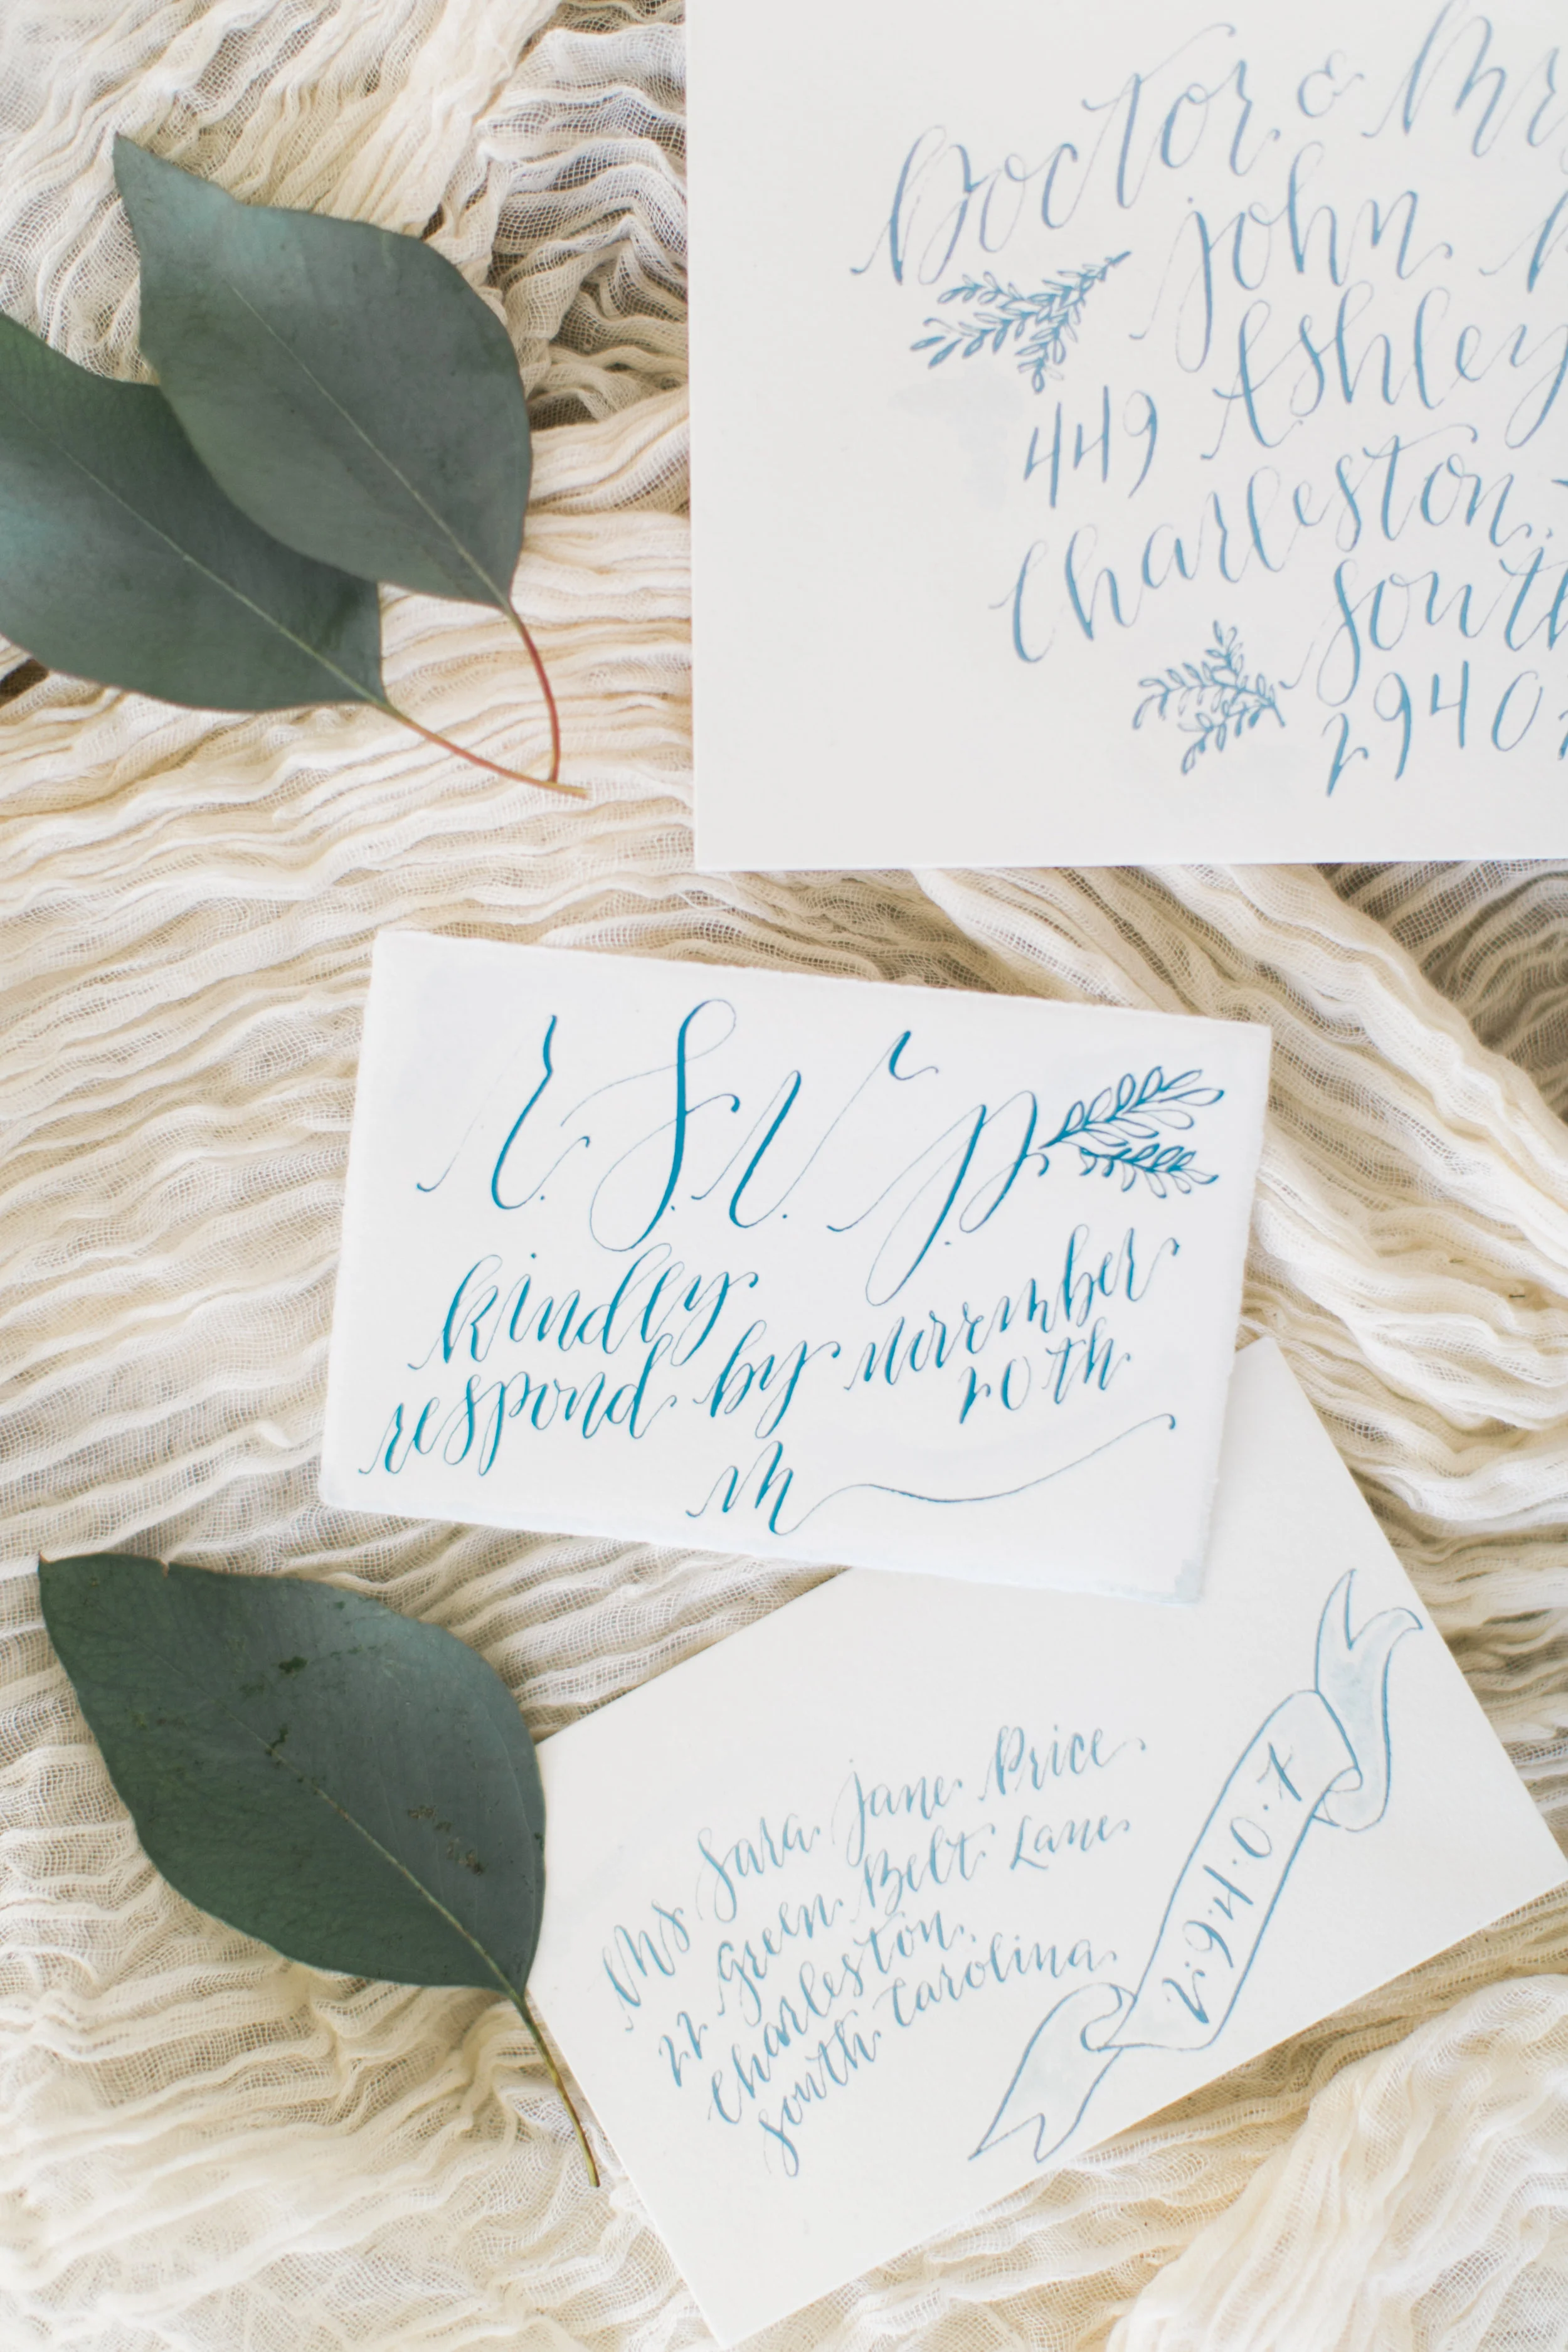 Doctor & Mr
John
449 Ashley
Charleston
South
2940
R.S.V.P.
kindly
respond by november
20th
m
Ms Sara Jane Price
22 Green Belt Lane
Charleston,
South Carolina
2.9.4.0.7